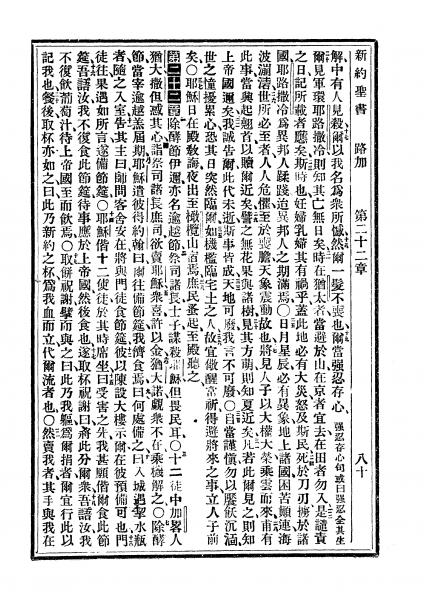 新約聖書 路加 第二十二章 八十
解中有人見殺爾以我名爲衆所憾然爾一髮不喪也爾當強忍存心 強忍存心句或曰強忍全其生
爾見軍環耶路撒冷則知其亡無日矣時在猶太者當避於山在京者宜去在田者勿入是譴責
之日記所載者應矣斯時也妊婦乳婦其有禍乎蓋此地必有大災怒及斯民死於刀刃擄於諸
國耶路撒冷爲異邦人蹂踐迨異邦人之期滿焉〇日月星辰必有異象地上諸國困苦顛連海
波漰濤世所必至者人人危懼至於喪膽天象震動故也將見人子以大權大榮乘雲而來甫有
此事當興起翹首以贖爾近矣譬之無花果與諸樹見其方萌則知夏近矣凡若此爾見之則知
上帝國邇矣我誠告爾此代未逝斯事皆成天地可廢我言不可廢〇自當謹愼勿以饜飫沉湎
世之憧擾累心恐其日突然臨爾如機檻臨宅土之人故宜儆醒常祈得避將來之事立人子前
矣〇耶穌日在殿敎誨夜出至橄欖山宿焉庶民蚤起至殿聽之
第二十二章 除酵節伊邇亦名逾越節祭司諸長士子謀殺耶穌但畏民耳〇十二徒中加畧人
猶大撒但惑其心語祭司諸長庶司欲賣耶穌衆喜許以金猶大諾覷衆不在乘機解之〇除酵
節當宰逾越羔屆期耶穌遣彼得約翰曰爾往備節筵我儕食焉曰何處備之曰入城遇挈水瓶
者隨之入室告其主曰師問客舍安在將與門徒食節筵彼以陳設大樓示爾在彼預備可也門
徒往果遇如所言遂備節筵〇耶穌偕十二使徒於其時席坐曰受害之先我甚願偕爾食此節
筵吾語汝我不復食此節筵待事應於上帝國然後食也遂取杯祝謝曰將此分爾衆吾語汝我
不復飲葡萄汁待上帝國至而飲焉〇取餅祝謝擘而與之曰此乃我軀爲爾捐者爾宜行此以
記我也餐後取杯亦如之曰此乃新約之杯爲我血而立代爾流者也〇然賣我者其手與我在